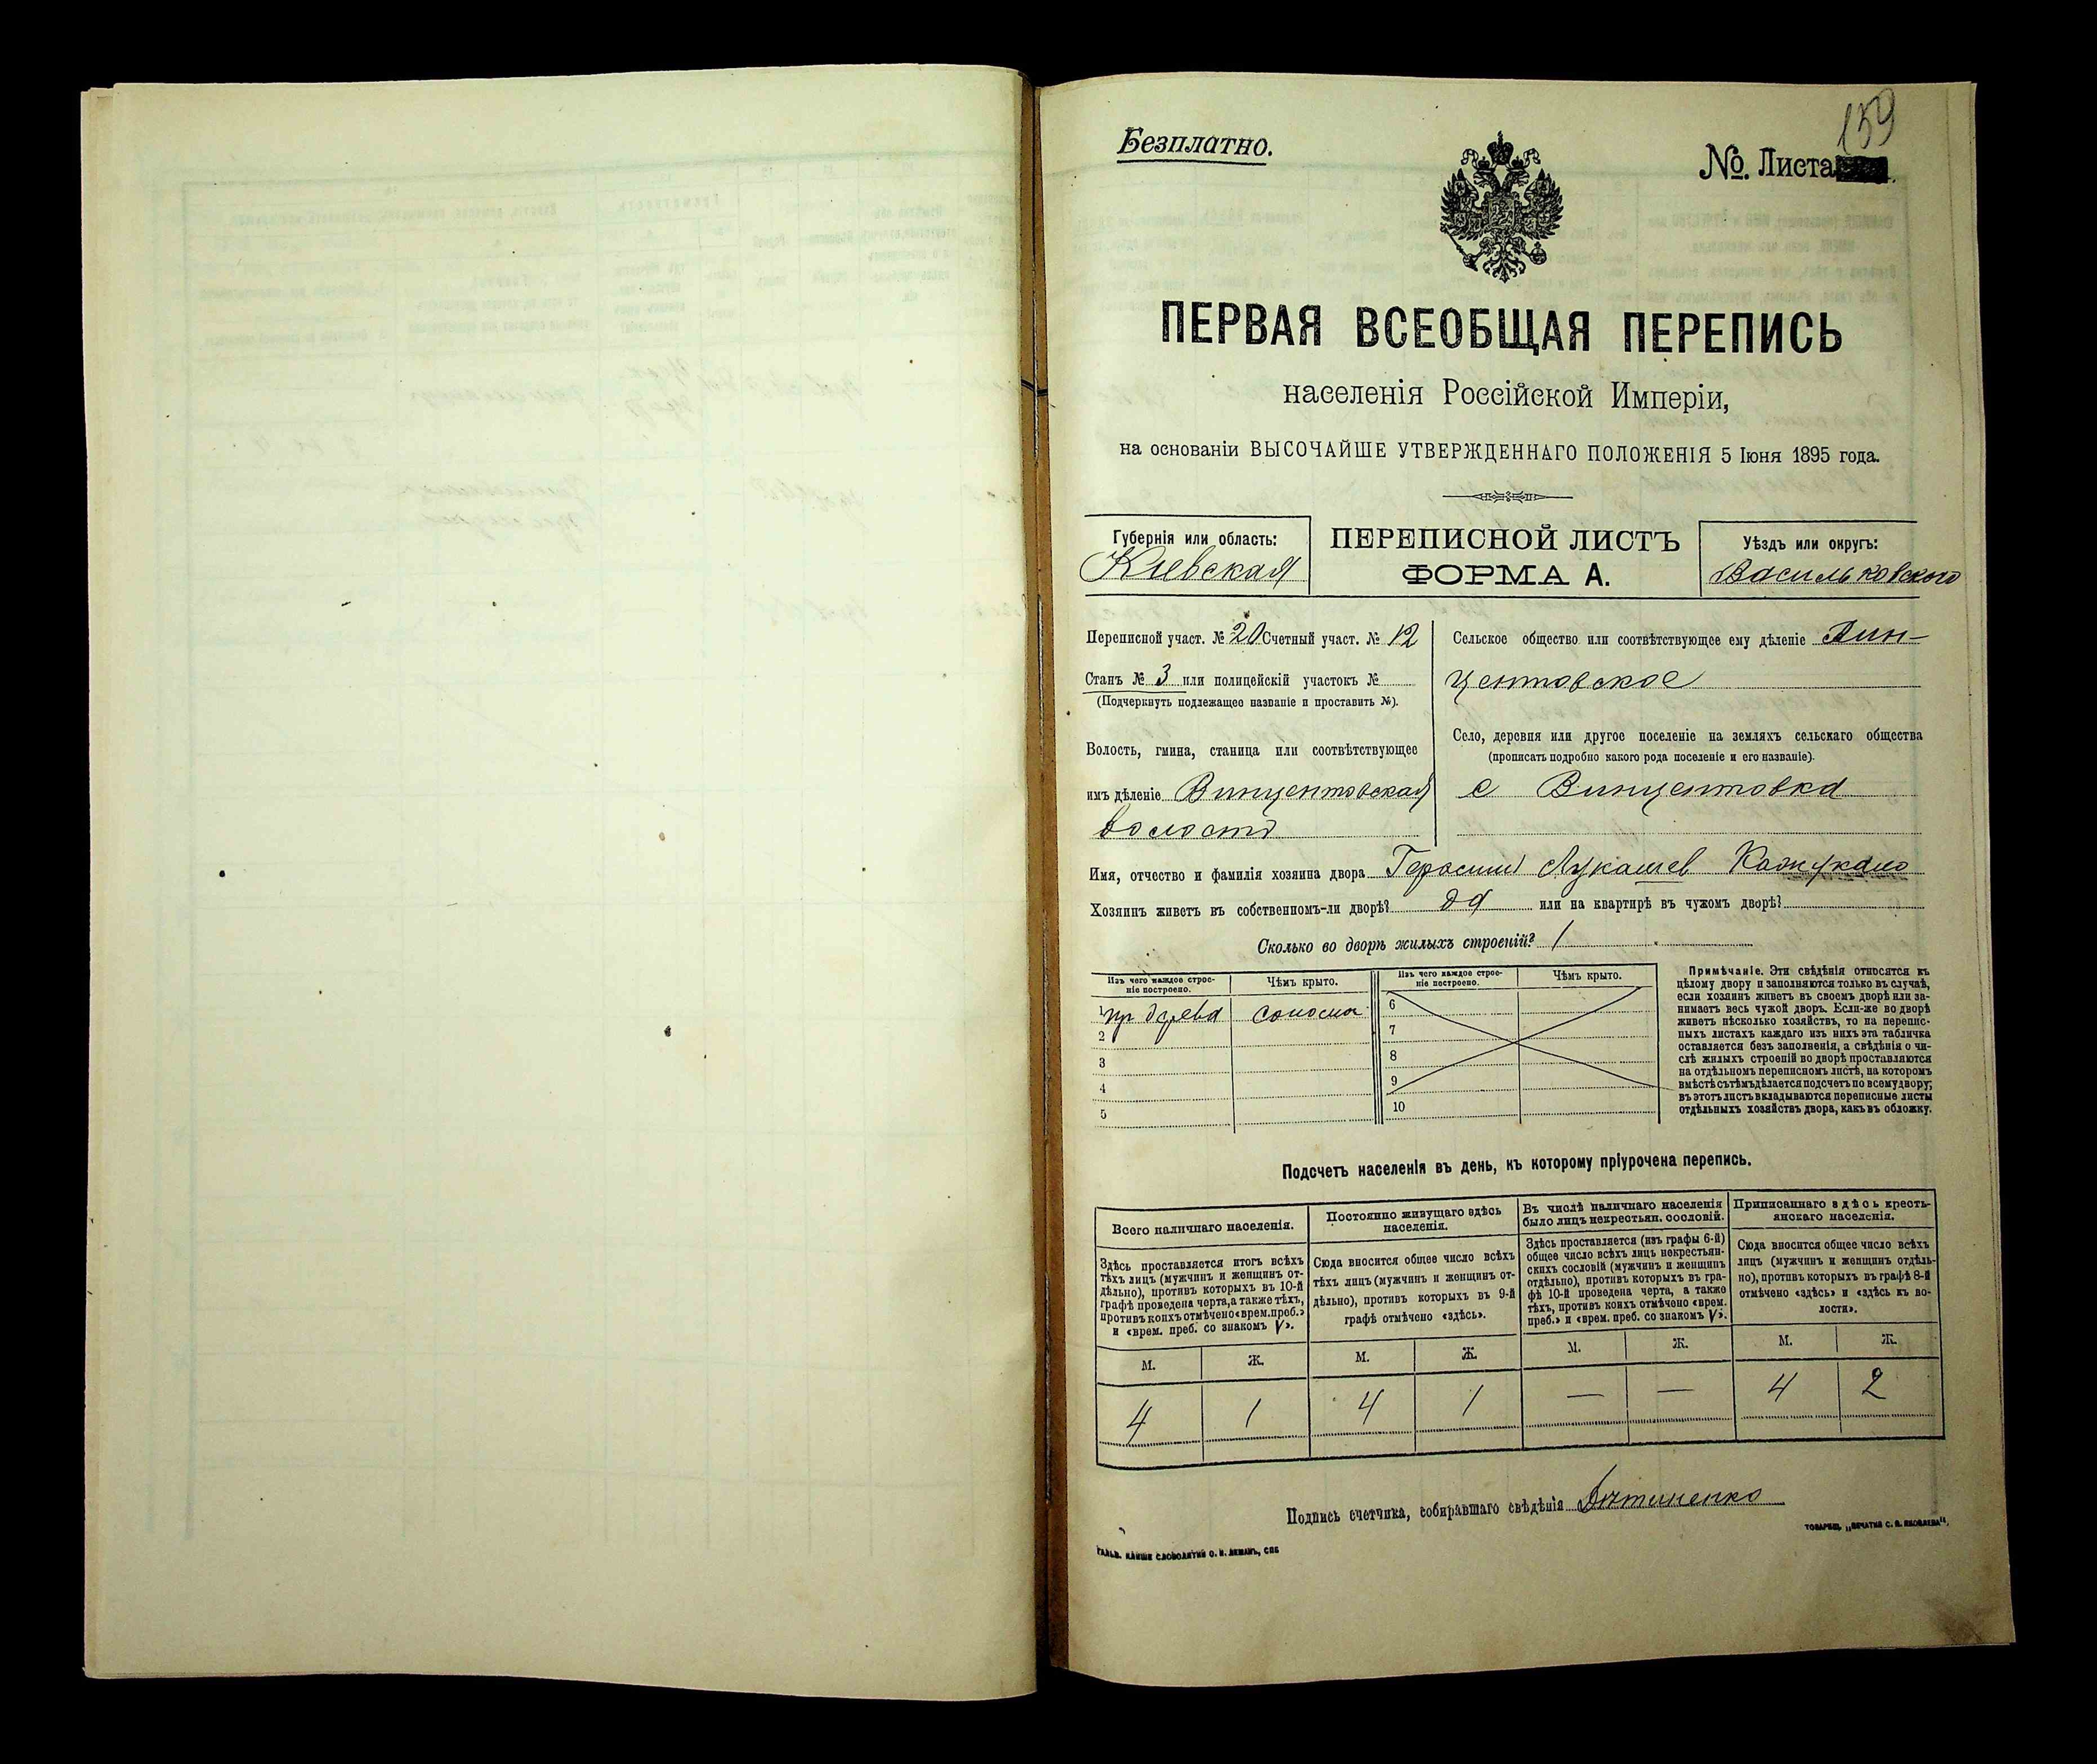 Безплатно.
159
№. Листа
ПЕРВАЯ ВСЕОБЩАЯ ПЕРЕПИСЬ
населенія Россійской Имперіи,
на основаніи ВЫСОЧАЙШЕ УТВЕРЖДЕННАГО ПОЛОЖЕНІЯ 5 Іюня 1895 года.
Губернія или область:
Киевская
ПЕРЕПИСНОЙ ЛИСТЪ
ФОРМА А.
Уѣздъ или округъ:
Васильковского
Переписной участ. № 20 Счетный участ. № 12
Станъ № 3 или полицейскій участокъ №
(Подчеркнуть подлежащее названіе и проставить №).
Волость, гмина, станица или соотвѣтствующее
имъ дѣленіе Винцентовская
волость
Сельское общество или соотвѣтствующее ему дѣленіе Вин-
центовское
Село, деревня или другое поселеніе на земляхъ сельскаго общества
(прописать подробно какого рода поселеніе и его названіе).
с Винцентовка
Имя, отчество и фамилія хозяина двора Герасим Лукашев
Хозяинъ живетъ въ собственномъ-ли дворѣ? да или на квартирѣ въ чужомъ дворѣ?
Сколько во дворѣ жилыхъ строеній? 1
Изъ чего каждое строе-
ніе построено.
Чѣмъ крыто.
Изъ чего каждое строе-
ніе построено.
Чѣмъ крыто.
1 древа
2
3
4
5
6
7
8
9
10
Примѣчаніе. Эти свѣдѣнія относятся къ
цѣлому двору и заполняются только въ случаѣ,
если хозяинъ живетъ въ своемъ дворѣ или за-
нимаетъ весь чужой дворъ. Если-же во дворѣ
живетъ нѣсколько хозяйствъ, то на перепис-
ныхъ листахъ каждаго изъ нихъ эта табличка
оставляется безъ заполненія, а свѣдѣнія о чи-
слѣ жилыхъ строеній во дворѣ проставляются
на отдѣльномъ переписномъ листѣ, на которомъ
вмѣстѣ съ тѣмъ дѣлается подсчетъ по всему двору;
въ этотъ листъ вкладываются переписные листы
отдѣльныхъ хозяйствъ двора, какъ въ обложку.
Подсчетъ населенія въ день, къ которому пріурочена перепись.
Всего наличнаго населенія.
Постоянно живущаго здѣсь
населенія.
Въ числѣ наличнаго населенія
было лицъ некрестьян. сословій.
Приписаннаго здѣсь кресть-
янскаго населенія.
Здѣсь проставляется итогъ всѣхъ
тѣхъ лицъ (мужчинъ и женщинъ от-
дѣльно), противъ которыхъ въ 10-й
графѣ проведена черта, а также тѣхъ,
противъ коихъ отмѣчено «врем. преб.»
и «врем. преб. со знакомъ V».
Сюда вносится общее число всѣхъ
тѣхъ лицъ (мужчинъ и женщинъ от-
дѣльно), противъ которыхъ въ 9-й
графѣ отмѣчено «здѣсь».
Здѣсь проставляется (изъ графы 6-й)
общее число всѣхъ лицъ некрестьян-
скихъ сословій (мужчинъ и женщинъ
отдѣльно), противъ которыхъ въ гра-
фѣ 10-й проведена черта, а также
тѣхъ, противъ коихъ отмѣчено «врем.
преб.» и «врем. преб. со знакомъ V».
Сюда вносится общее число всѣхъ
лицъ (мужчинъ и женщинъ отдѣль-
но), противъ которыхъ въ графѣ 8-й
отмѣчено «здѣсь» и «здѣсь къ во-
лости».
М. Ж. М. Ж. М. Ж. М. Ж.
4 1 4 1 — — 4 2
Подпись счетчика, собиравшаго свѣдѣнія
ГАЛЬВ. КЛИШЕ СЛОВОЛИТНИ О. И. ЛЕМАНЪ, СПБ
ТОВАРИЩ. „ПЕЧАТНЯ С. П. ЯКОВЛЕВА“.